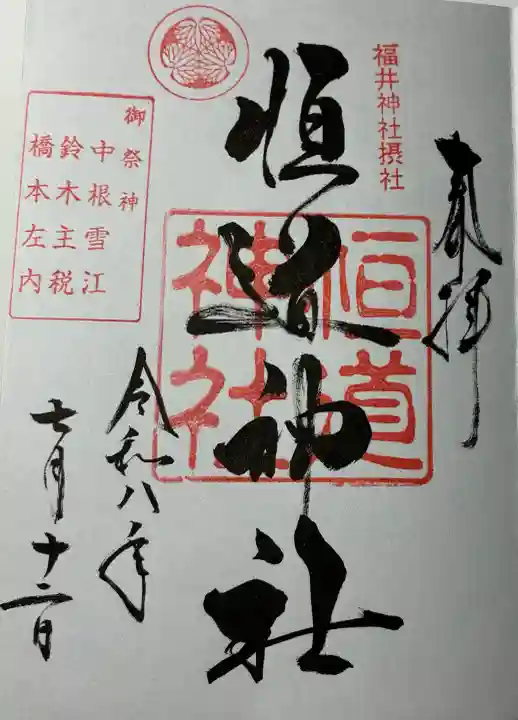 奉拝
福井神社摂社
恒道神社
恒道神社
御祭神
中根雪江
鈴木主税
橋本左内
令和八年
七月十二日